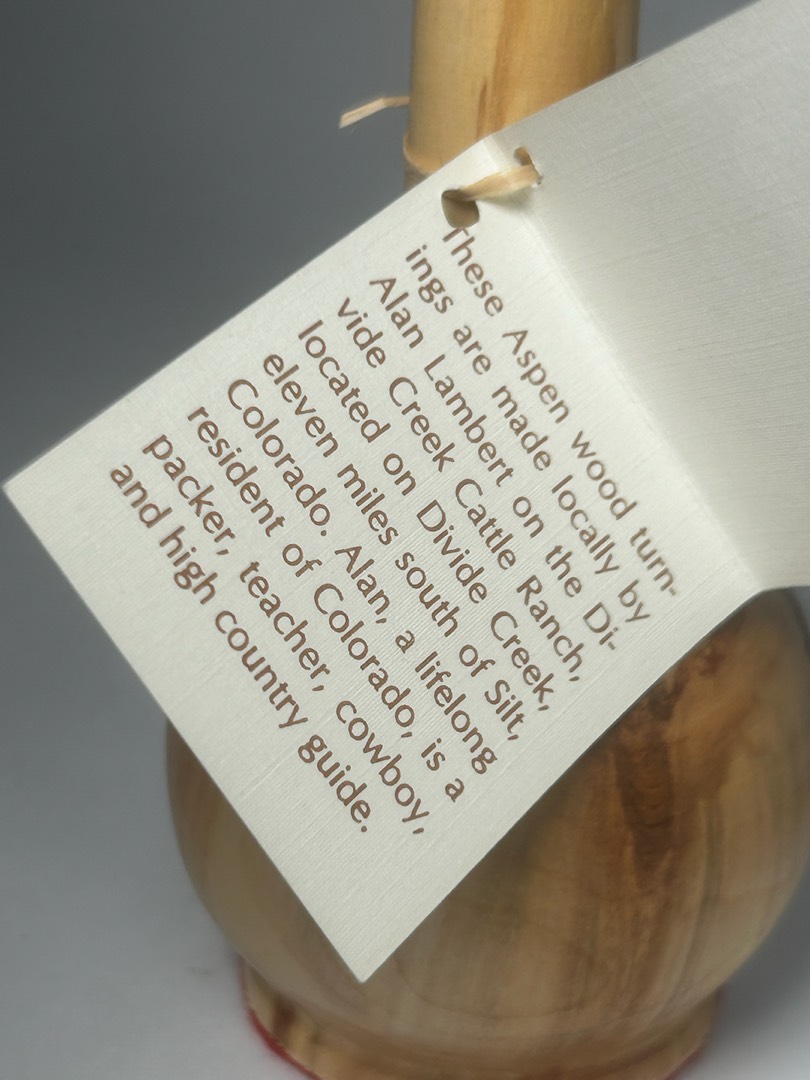 These Aspen wood turn-
ings are made locally by
Alan Lambert on the Di-
vide Creek Cattle Ranch,
located on Divide Creek,
eleven miles south of Silt,
Colorado. Alan, a lifelong
resident of Colorado, is a
packer, teacher, cowboy,
and high country guide.